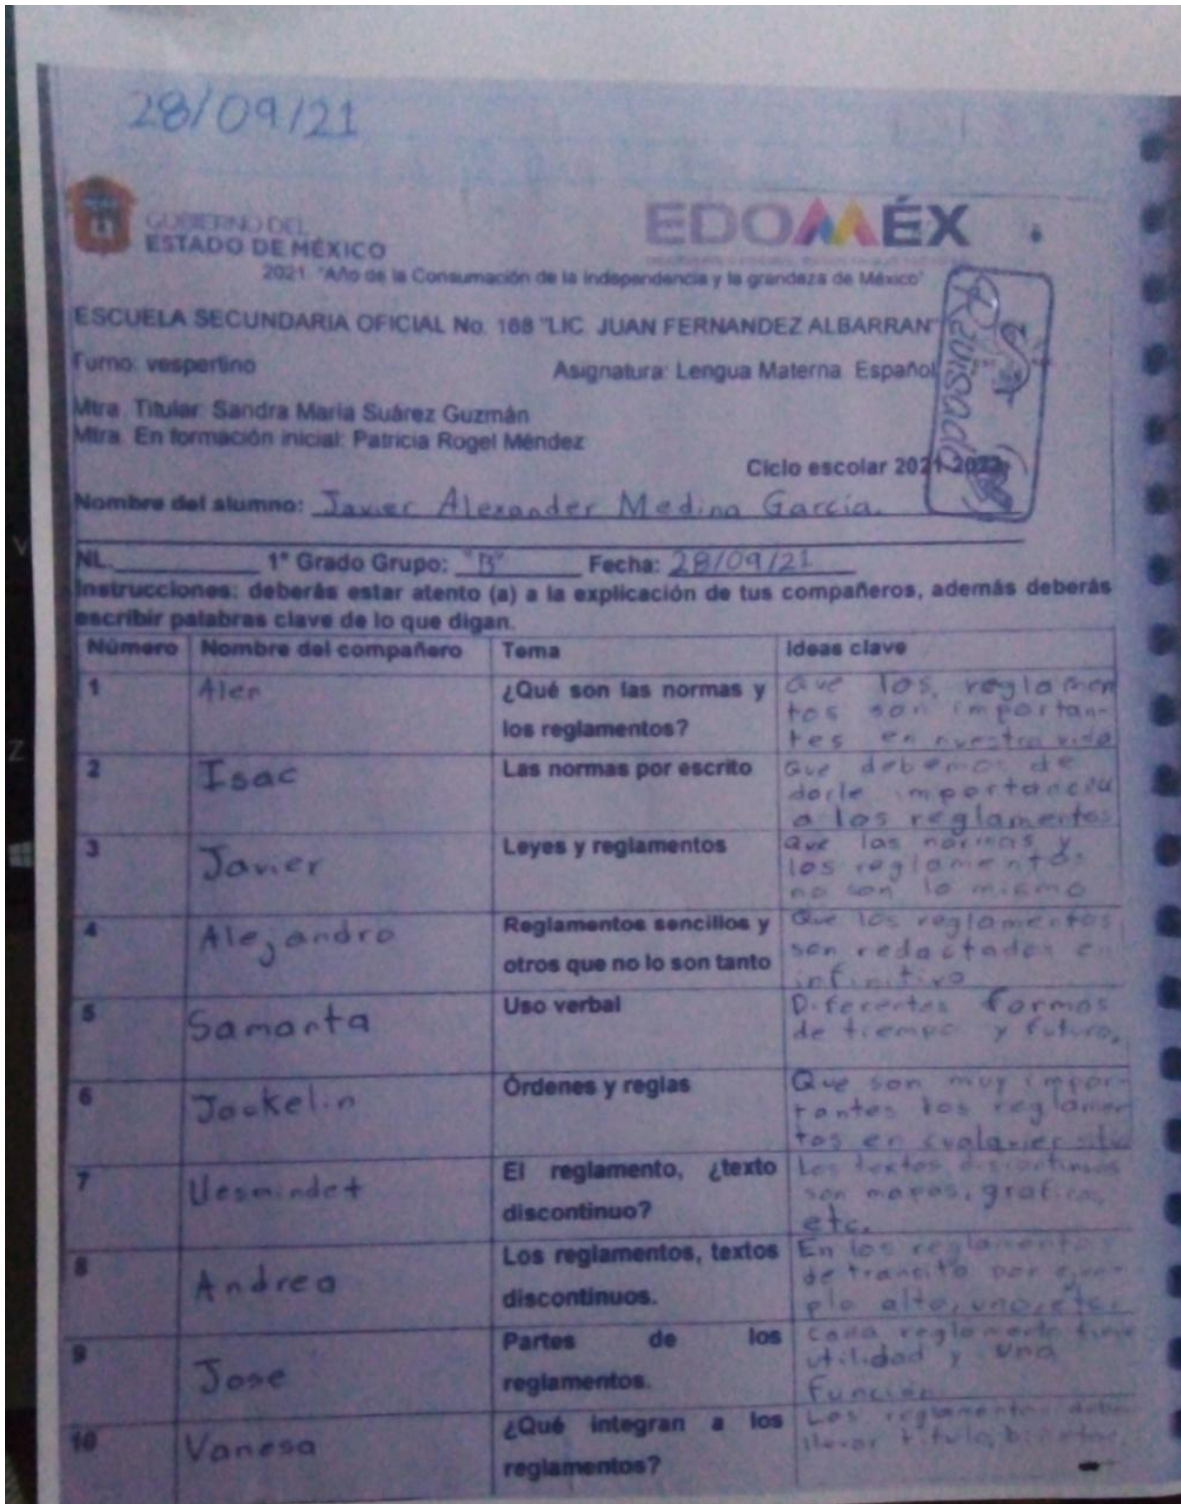 28/09/21
GOBIERNO DEL
ESTADO DE MÉXICO
EDOMÉX
2021. "Año de la Consumación de la Independencia y la grandeza de México"
ESCUELA SECUNDARIA OFICIAL No. 168 "LIC. JUAN FERNANDEZ ALBARRAN"
Turno: vespertino Asignatura: Lengua Materna. Español
Revisado
Mtra. Titular: Sandra María Suárez Guzmán
Mtra. En formación inicial: Patricia Rogel Méndez
Ciclo escolar 2021-2022
Nombre del alumno: Javier Alexander Medina García.
NL. 1° Grado Grupo: "B" Fecha: 28/09/21
Instrucciones: deberás estar atento (a) a la explicación de tus compañeros, además deberás
escribir palabras clave de lo que digan.
Número Nombre del compañero Tema Ideas clave
1 Aler ¿Qué son las normas y Que los reglamen
los reglamentos? tos son importan-
tes en nuestra vida
2 Isac Las normas por escrito Que debemos de
darle importancia
a los reglamentos
3 Javier Leyes y reglamentos Que las normas y
los reglamentos
no son lo mismo
4 Alejandro Reglamentos sencillos y Que los reglamentos
otros que no lo son tanto son redactados en
infinitivo
5 Samanta Uso verbal Diferentes formas
de tiempo y futuro.
6 Jackelin Órdenes y reglas Que son muy impor-
tantes los reglamen
tos en cualquier
7 El reglamento, ¿texto Los textos discontinuos
discontinuo? son mapas, graficas,
etc.
8 Andrea Los reglamentos, textos En los reglamentos
discontinuos. de transito por ejem
plo alto, uno, etc.
9 Jose Partes de los Cada reglamento tiene
reglamentos. utilidad y una
Función
10 Vanesa ¿Qué integran a los Los reglamentos
reglamentos? llevar titulo,